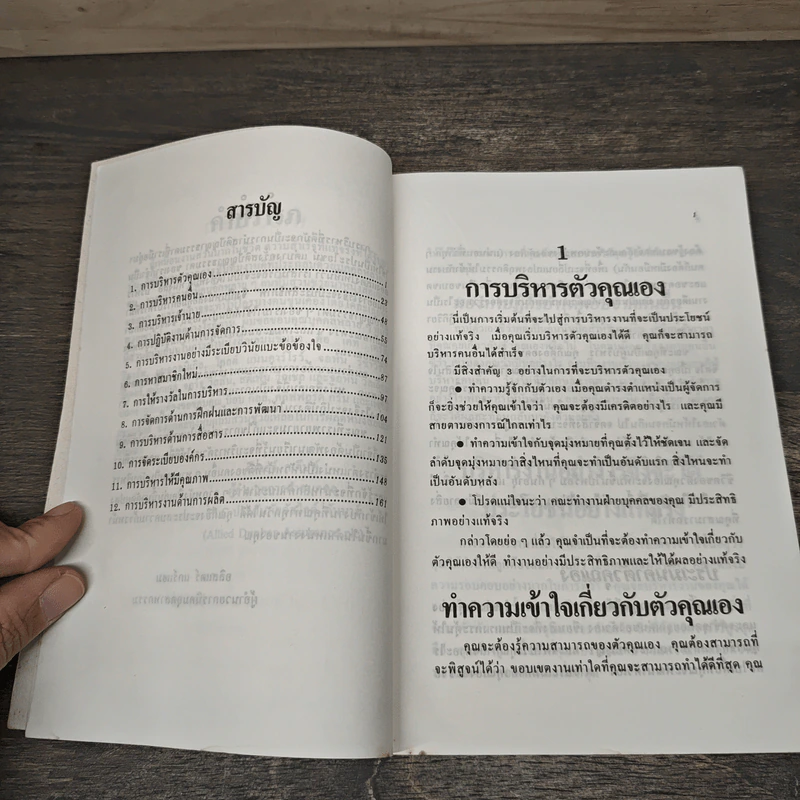 สารบัญ
1. การบริหารตัวคุณเอง 1
2. การบริหารคนอื่น 23
3. การบริหารเจ้านาย 48
4. การปฏิบัติงานด้านการจัดการ 55
5. การบริหารงานอย่างมีระเบียบวินัยและข้อข้องใจ 74
6. การหาสมาชิกใหม่ 87
7. การให้รางวัลในการบริหาร 97
8. การจัดการด้านการฝึกฝนและการพัฒนา 104
9. การบริหารด้านการสื่อสาร 121
10. การจัดระเบียบองค์กร 135
11. การบริหารให้มีคุณภาพ 148
12. การบริหารงานด้านการผลิต 161
1
1
การบริหารตัวคุณเอง
นี่เป็นการเริ่มต้นที่จะไปสู่การบริหารงานที่จะเป็นประโยชน์
อย่างแท้จริง เมื่อคุณเริ่มบริหารตัวคุณเองได้ดี คุณก็จะสามารถ
บริหารคนอื่นได้สำเร็จ
มีสิ่งสำคัญ 3 อย่างในการที่จะบริหารตัวคุณเอง
● ทำความรู้จักกับตัวเอง เมื่อคุณดำรงตำแหน่งเป็นผู้จัดการ
ก็จะยิ่งช่วยให้คุณเข้าใจว่า คุณจะต้องมีเครดิตอย่างไร และคุณมี
สายตามองการณ์ไกลเท่าไร
● ทำความเข้าใจกับจุดมุ่งหมายที่คุณตั้งไว้ให้ชัดเจน และจัด
ลำดับจุดมุ่งหมายว่าสิ่งไหนที่คุณจะทำเป็นอันดับแรก สิ่งไหนจะทำ
เป็นอันดับหลัง
● โปรดแน่ใจนะว่า คณะทำงานฝ่ายบุคคลของคุณ มีประสิทธิ
ภาพอย่างแท้จริง
กล่าวโดยย่อ ๆ แล้ว คุณจำเป็นที่จะต้องทำความเข้าใจเกี่ยวกับ
ตัวคุณเองให้ดี ทำงานอย่างมีประสิทธิภาพและให้ได้ผลอย่างแท้จริง
ทำความเข้าใจเกี่ยวกับตัวคุณเอง
คุณจะต้องรู้ความสามารถของตัวคุณเอง คุณต้องสามารถที่
จะพิสูจน์ได้ว่า ขอบเขตงานเท่าใดที่คุณจะสามารถทำได้ดีที่สุด คุณ